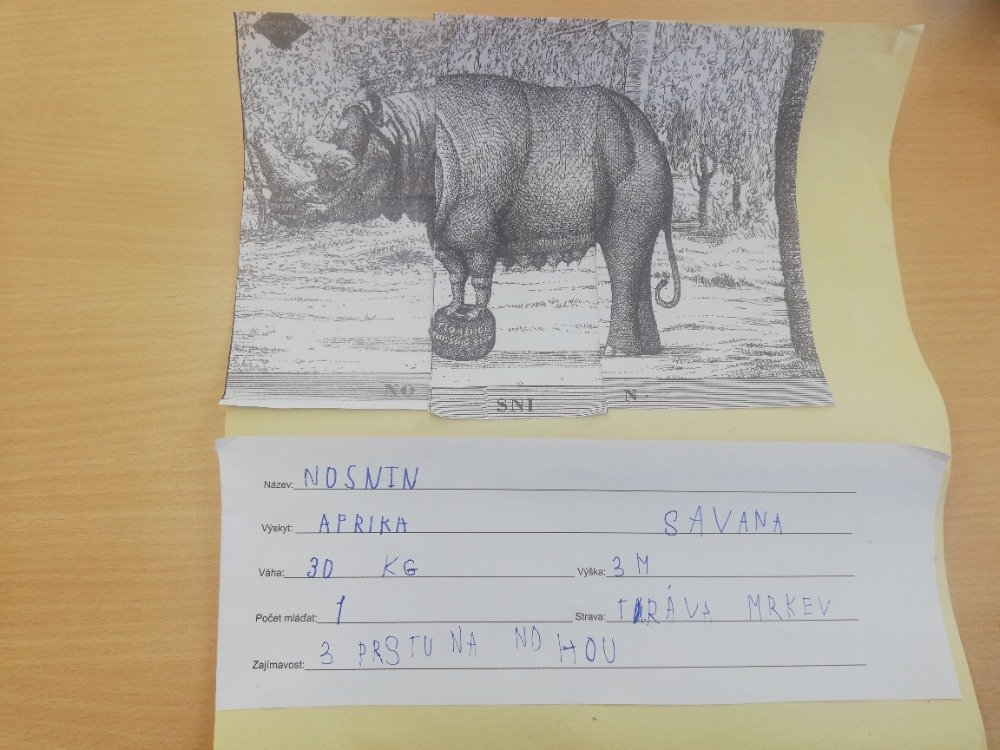 NO SNI N.
Název: NOSNIN
Výskyt: AFRIKA SAVANA
Váha: 30 KG Výška: 3 M
Počet mláďat: 1 Strava: TRÁVA MRKEV
Zajímavost: 3 PRSTU NA NOHOU